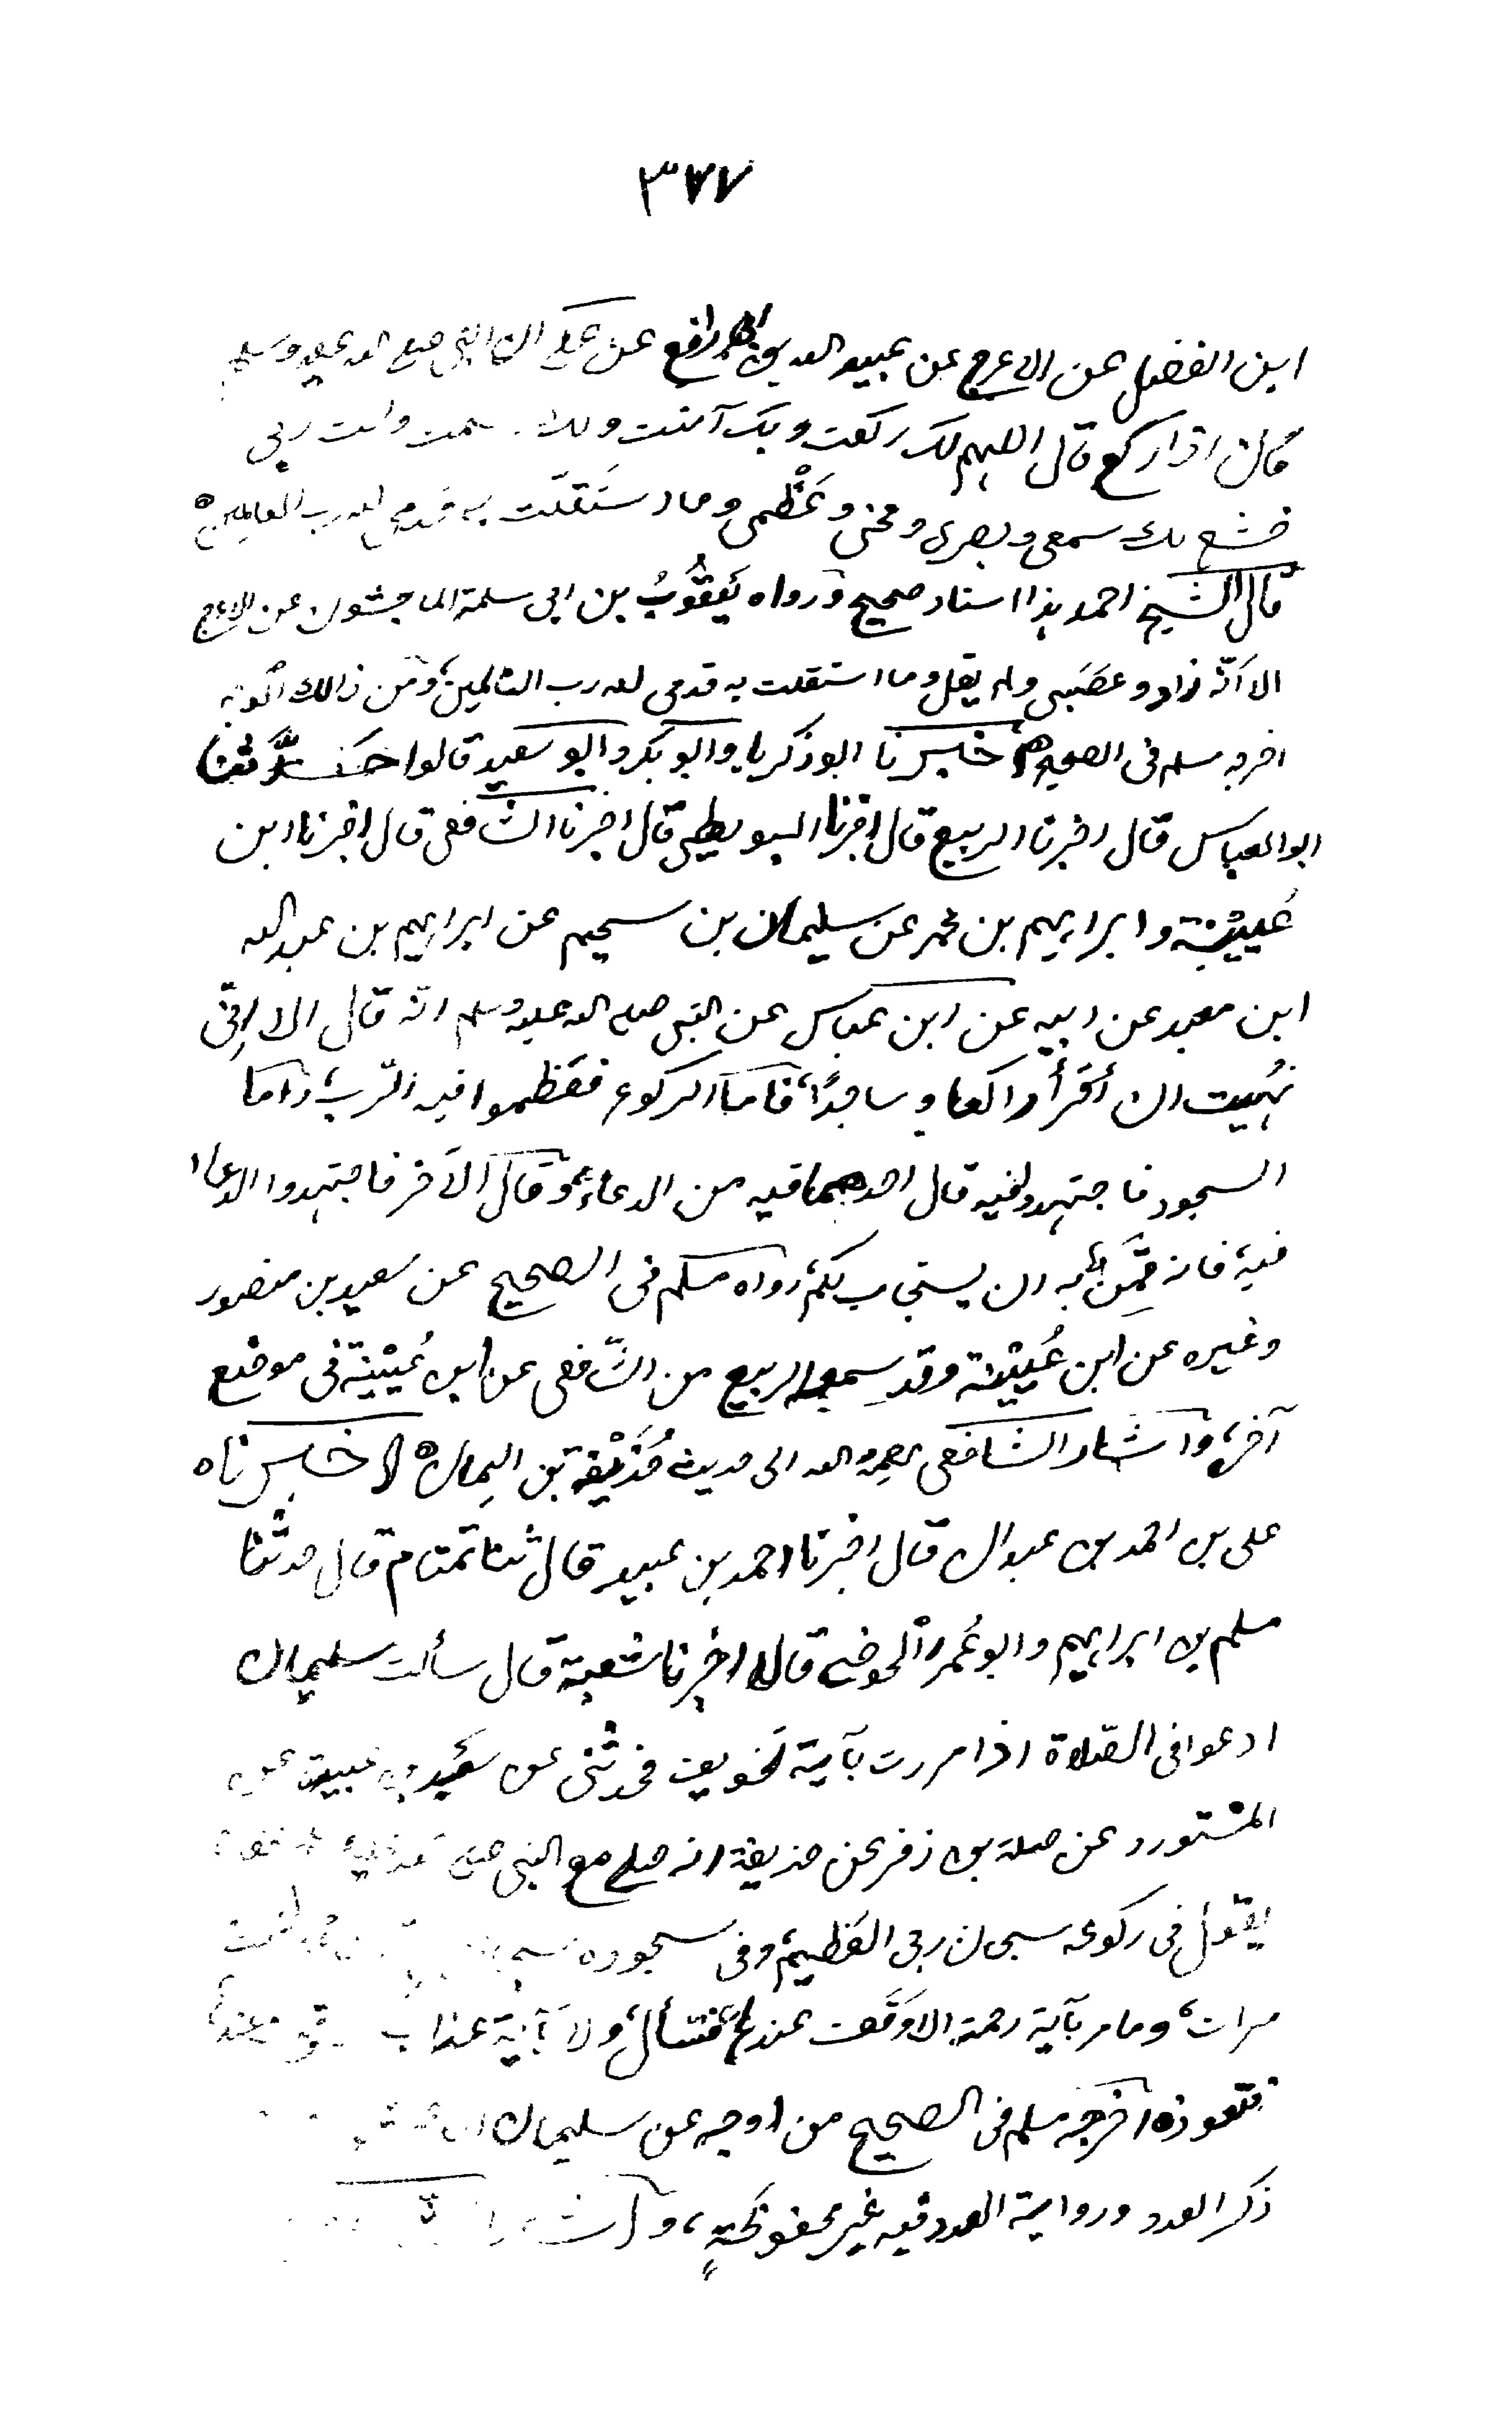 ٣٧٧
ابن الفضل عن الاعرج عن عبيد الله بن ابى رافع عن على ان النبى صلى الله عليه وسلم
كان اذا ركع قال اللهم لك ركعت وبك آمنت ولك اسلمت وانت ربى
خشع لك سمعى وبصرى ومخى وعَظْمى وما استَقلّت به قدمى لله رب العالمين ه
قال الشيخ احمد هذا اسناد صحيح ورواه يَعقُوبُ بن ابى سلمة الماجشون عن الاعرج
الا اَنّه زاد وعصَبى ولم يقل وما استقلت به قدمى لله رب العالمين، ومن ذالك الوجه
اخرجه مسلم فى الصحيح ه اخبرنا ابو زكريا وابو بكر وابو سعيد قالوا حَدَّثَنا
ابو العباس قال اخبرنا الربيع قال اخبرنا البويطى قال اخبرنا الشافعى قال اخبرنا ابن
عُيَيْنة وابراهيم بن محمد عن سليمان بن سحيم عن ابراهيم بن عبد الله
ابن معبد عن ابيه عن ابن عباس عن النبى صلى الله عليه وسلم انّه قال الا اِنّى
نُهيت ان أقرَأ راكعا وساجدًا، فامّا الركوع فعَظموا فيه الرّب، وامّا
السجود فاجتهدوا فيه قال احدهما فيه من الدعاء، وقال الآخر فاجتهدوا الدعاء
فيه، فانه قَمِنٌ به ان يستجاب لكم، رواه مسلم فى الصحيح عن سعيد بن منصور
وغيره عن ابن عُيَيْنة وقد سمعه الربيع من الشّافعى عن ابن عُيَيْنة فى موضع
آخر، واشار الشافعى رحمه الله الى حديث حُذَيْفة بن اليمان ه اخبرناه
على بن احمد بن عبدان قال اخبرنا احمد بن عبيد قال ثنا تمتام قال حدثنا
مسلم بن ابراهيم وابو عُمر الحوضى قالا اخبرنا شعبة قال سألت سليمان
ادعوا فى الصّلاة اذا مررت بآية تخويف فحدثنى عن سَعْد بن عبيدة عن
المستورد عن صلة بن زفر عن حذيفة انه صلى مع النبى صلى
يقول فى ركوعه سبحان ربى العَظيم، وفى سجوده
مرات، وما مر بآية رحمة الا وَقَف عندها، فسأل، ولا بآية عذاب
فتعوذ ه اخرجه مسلم فى الصحيح من اوجه عن سليمان
ذكر العدد ورواية العدد فيه غير محفوظةٍ، و